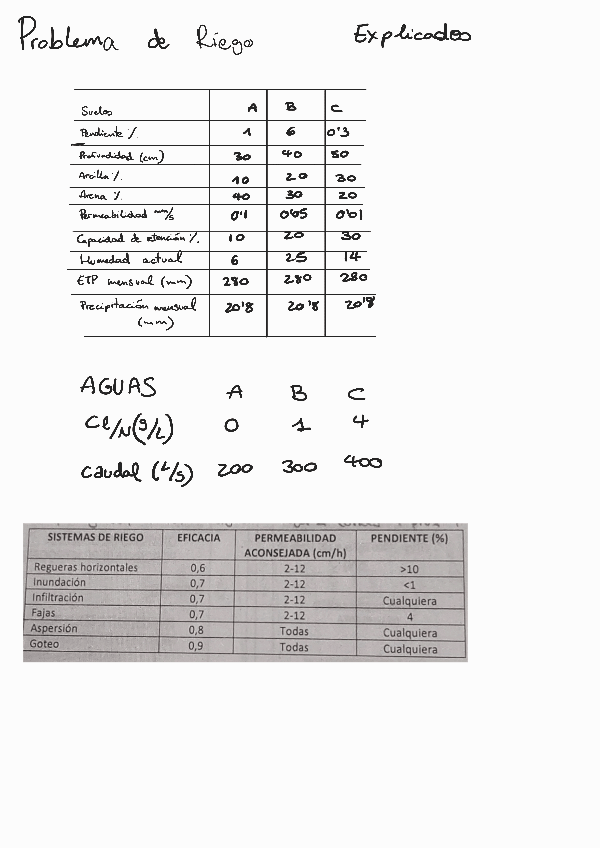 Problema de Riego Explicados
Suelos A B C
Pendiente % 1 6 0'3
Profundidad (cm) 30 40 50
Arcilla % 10 20 30
Arena % 40 30 20
Permeabilidad mm/s 0'1 0'05 0'01
Capacidad de retención % 10 20 30
Humedad actual 6 25 14
ETP mensual (mm) 280 280 280
Precipitación mensual 20'8 20'8 20'8
(mm)
AGUAS A B C
Cl/N(g/L) 0 1 4
Caudal (L/s) 200 300 400
SISTEMAS DE RIEGO EFICACIA PERMEABILIDAD PENDIENTE (%)
ACONSEJADA (cm/h)
Regueras horizontales 0,6 2-12 >10
Inundación 0,7 2-12 <1
Infiltración 0,7 2-12 Cualquiera
Fajas 0,7 2-12 4
Aspersión 0,8 Todas Cualquiera
Goteo 0,9 Todas Cualquiera